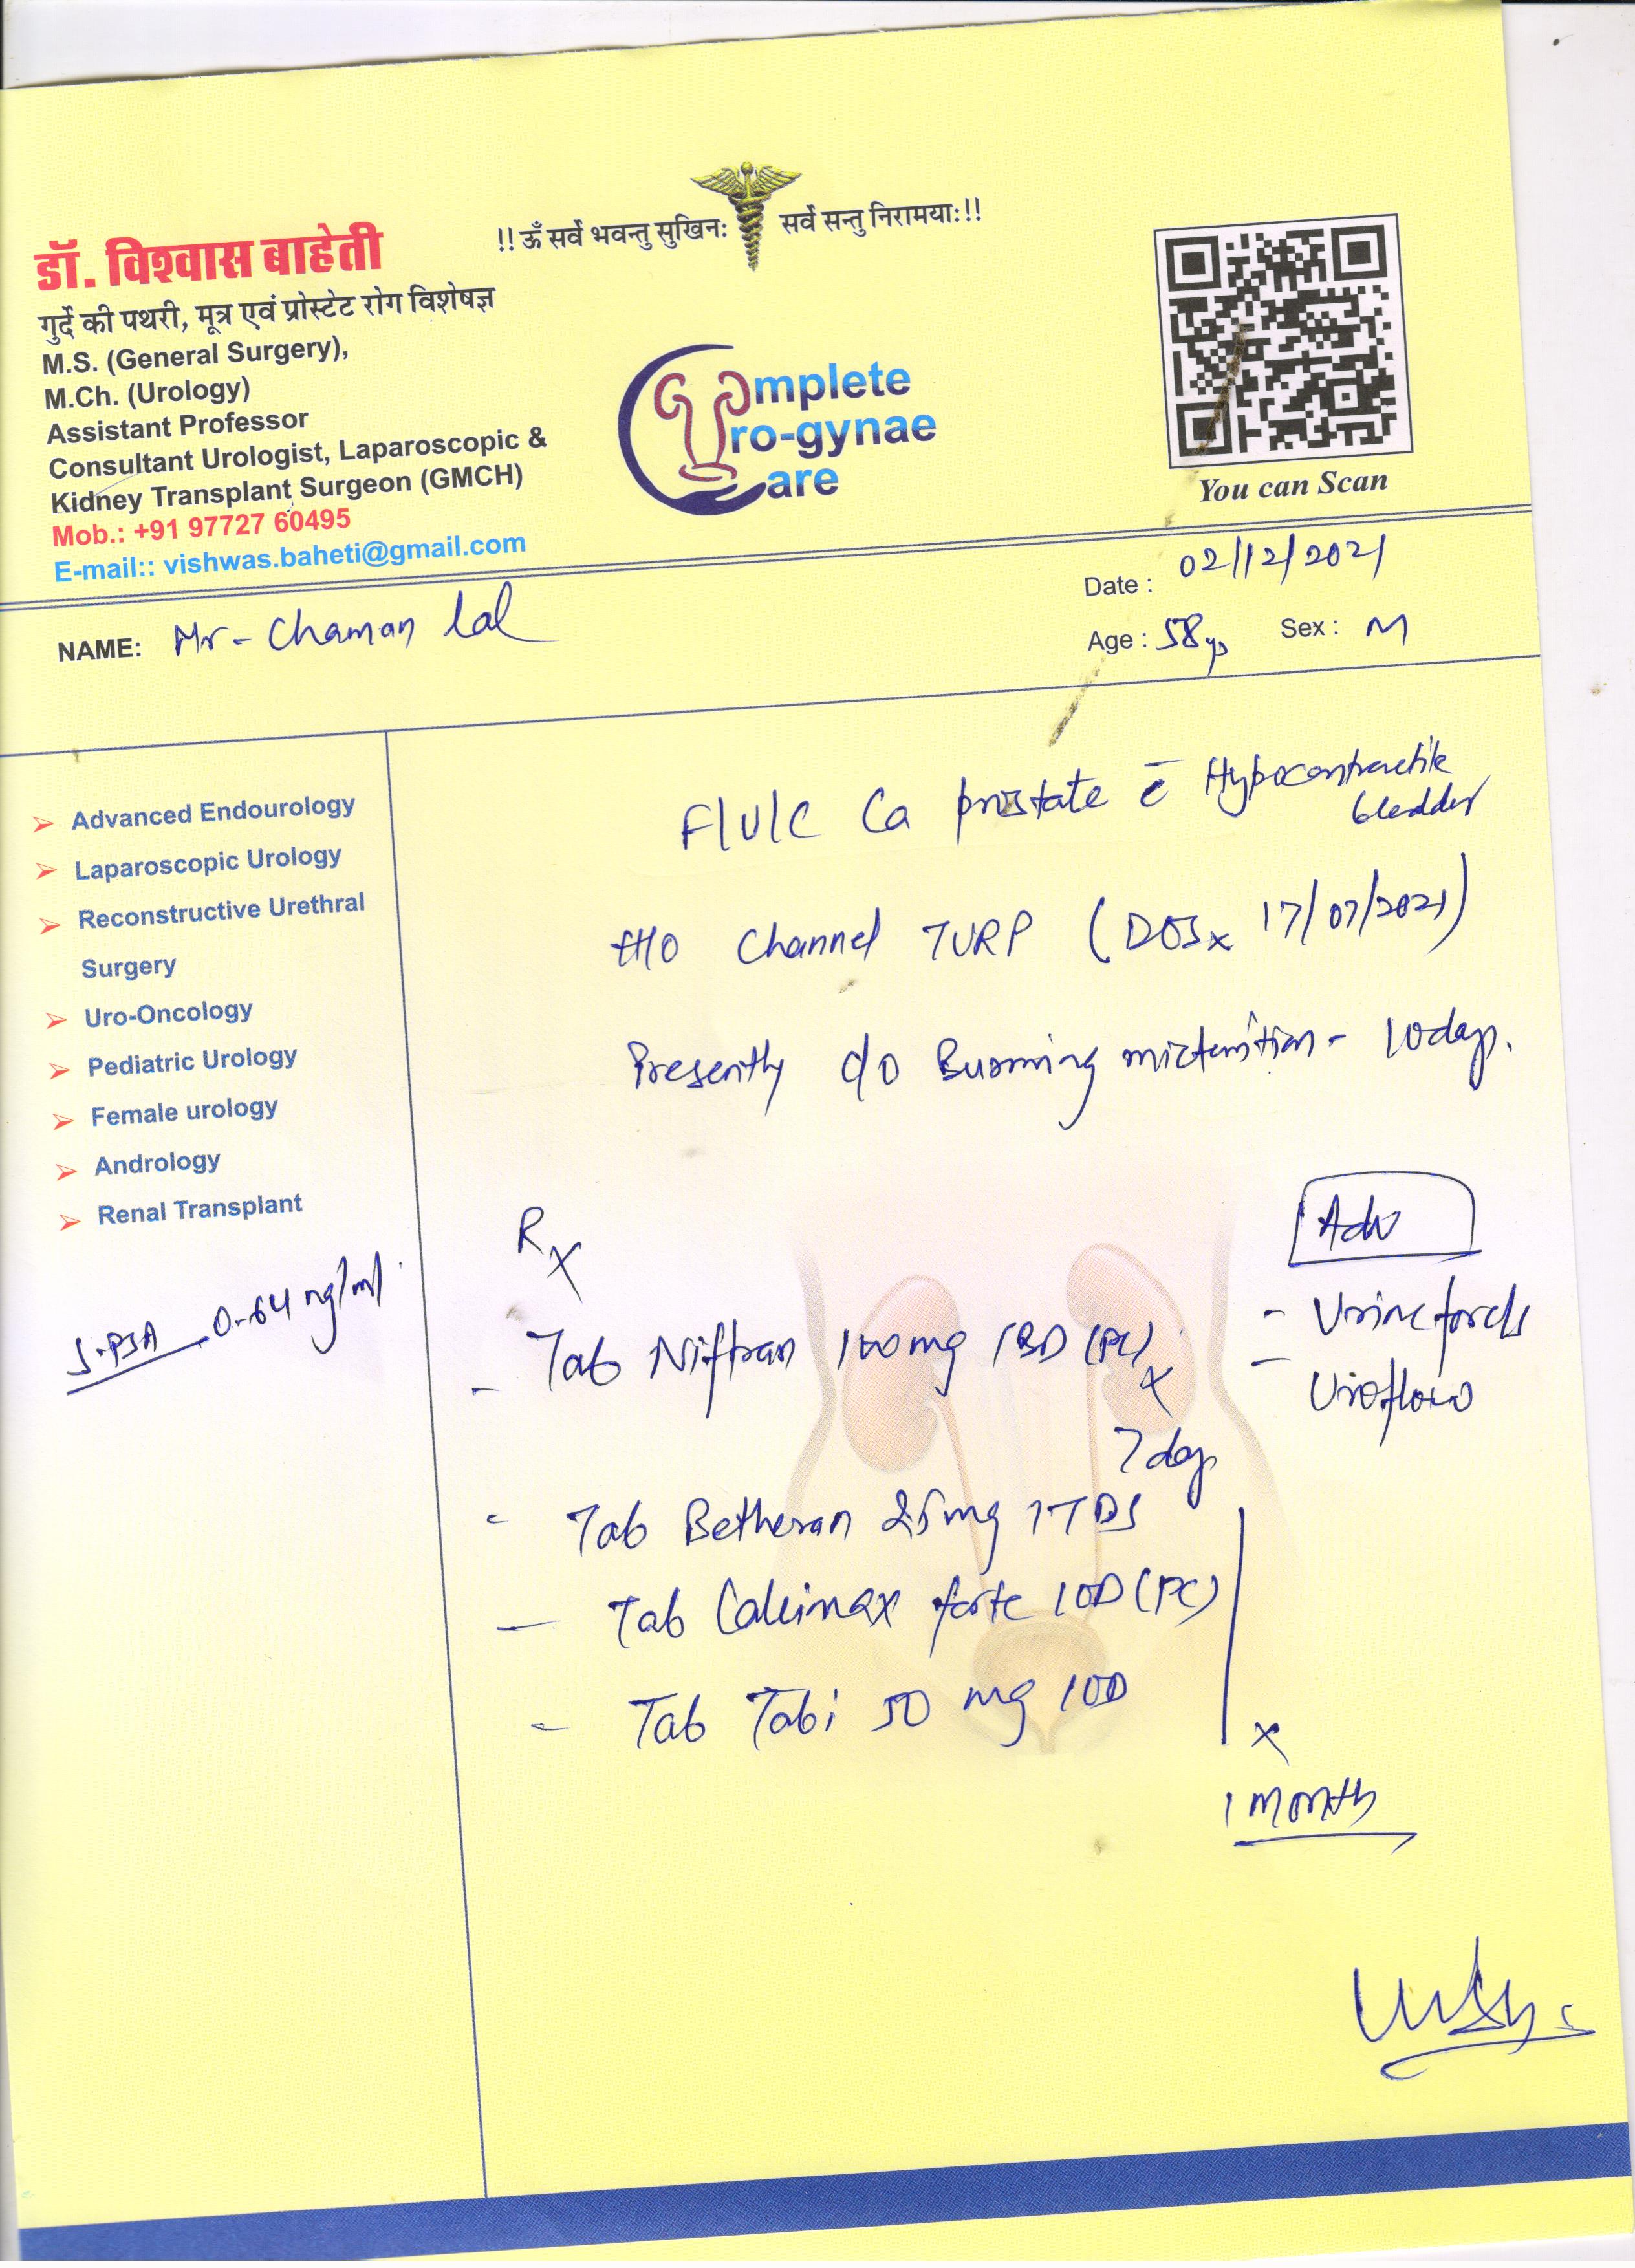 !! ॐ सर्वे भवन्तु सुखिनः सर्वे सन्तु निरामयाः!!
डॉ. विश्वास बाहेती
गुर्दे की पथरी, मूत्र एवं प्रोस्टेट रोग विशेषज्ञ
M.S. (General Surgery),
M.Ch. (Urology)
Assistant Professor
Consultant Urologist, Laparoscopic &
Kidney Transplant Surgeon (GMCH)
Mob.: +91 97727 60495
E-mail:: vishwas.baheti@gmail.com
Complete
Uro-gynae
Care
You can Scan
Date : 02/12/2021
NAME: Mr- Chaman Lal
Age : 58 yrs Sex : M
Advanced Endourology
Laparoscopic Urology
Reconstructive Urethral
Surgery
Uro-Oncology
Pediatric Urology
Female urology
Andrology
Renal Transplant
S.PSA 0.64 ng/ml
F/U/C Ca prostate c̄ Hypocontractile
bladder
H/O Channel TURP (DOSx 17/07/2021)
Presently c/o Burning micturition - 10 days.
Rx
- Tab Niftran 100mg 1BD (PC)
x
7 days
- Tab Betheran 25mg 1TDS
- Tab Calcimax forte 1OD (PC)
- Tab Tabi 50 mg 1OD
x
1 month
Adv
- Urine
- Uroflow